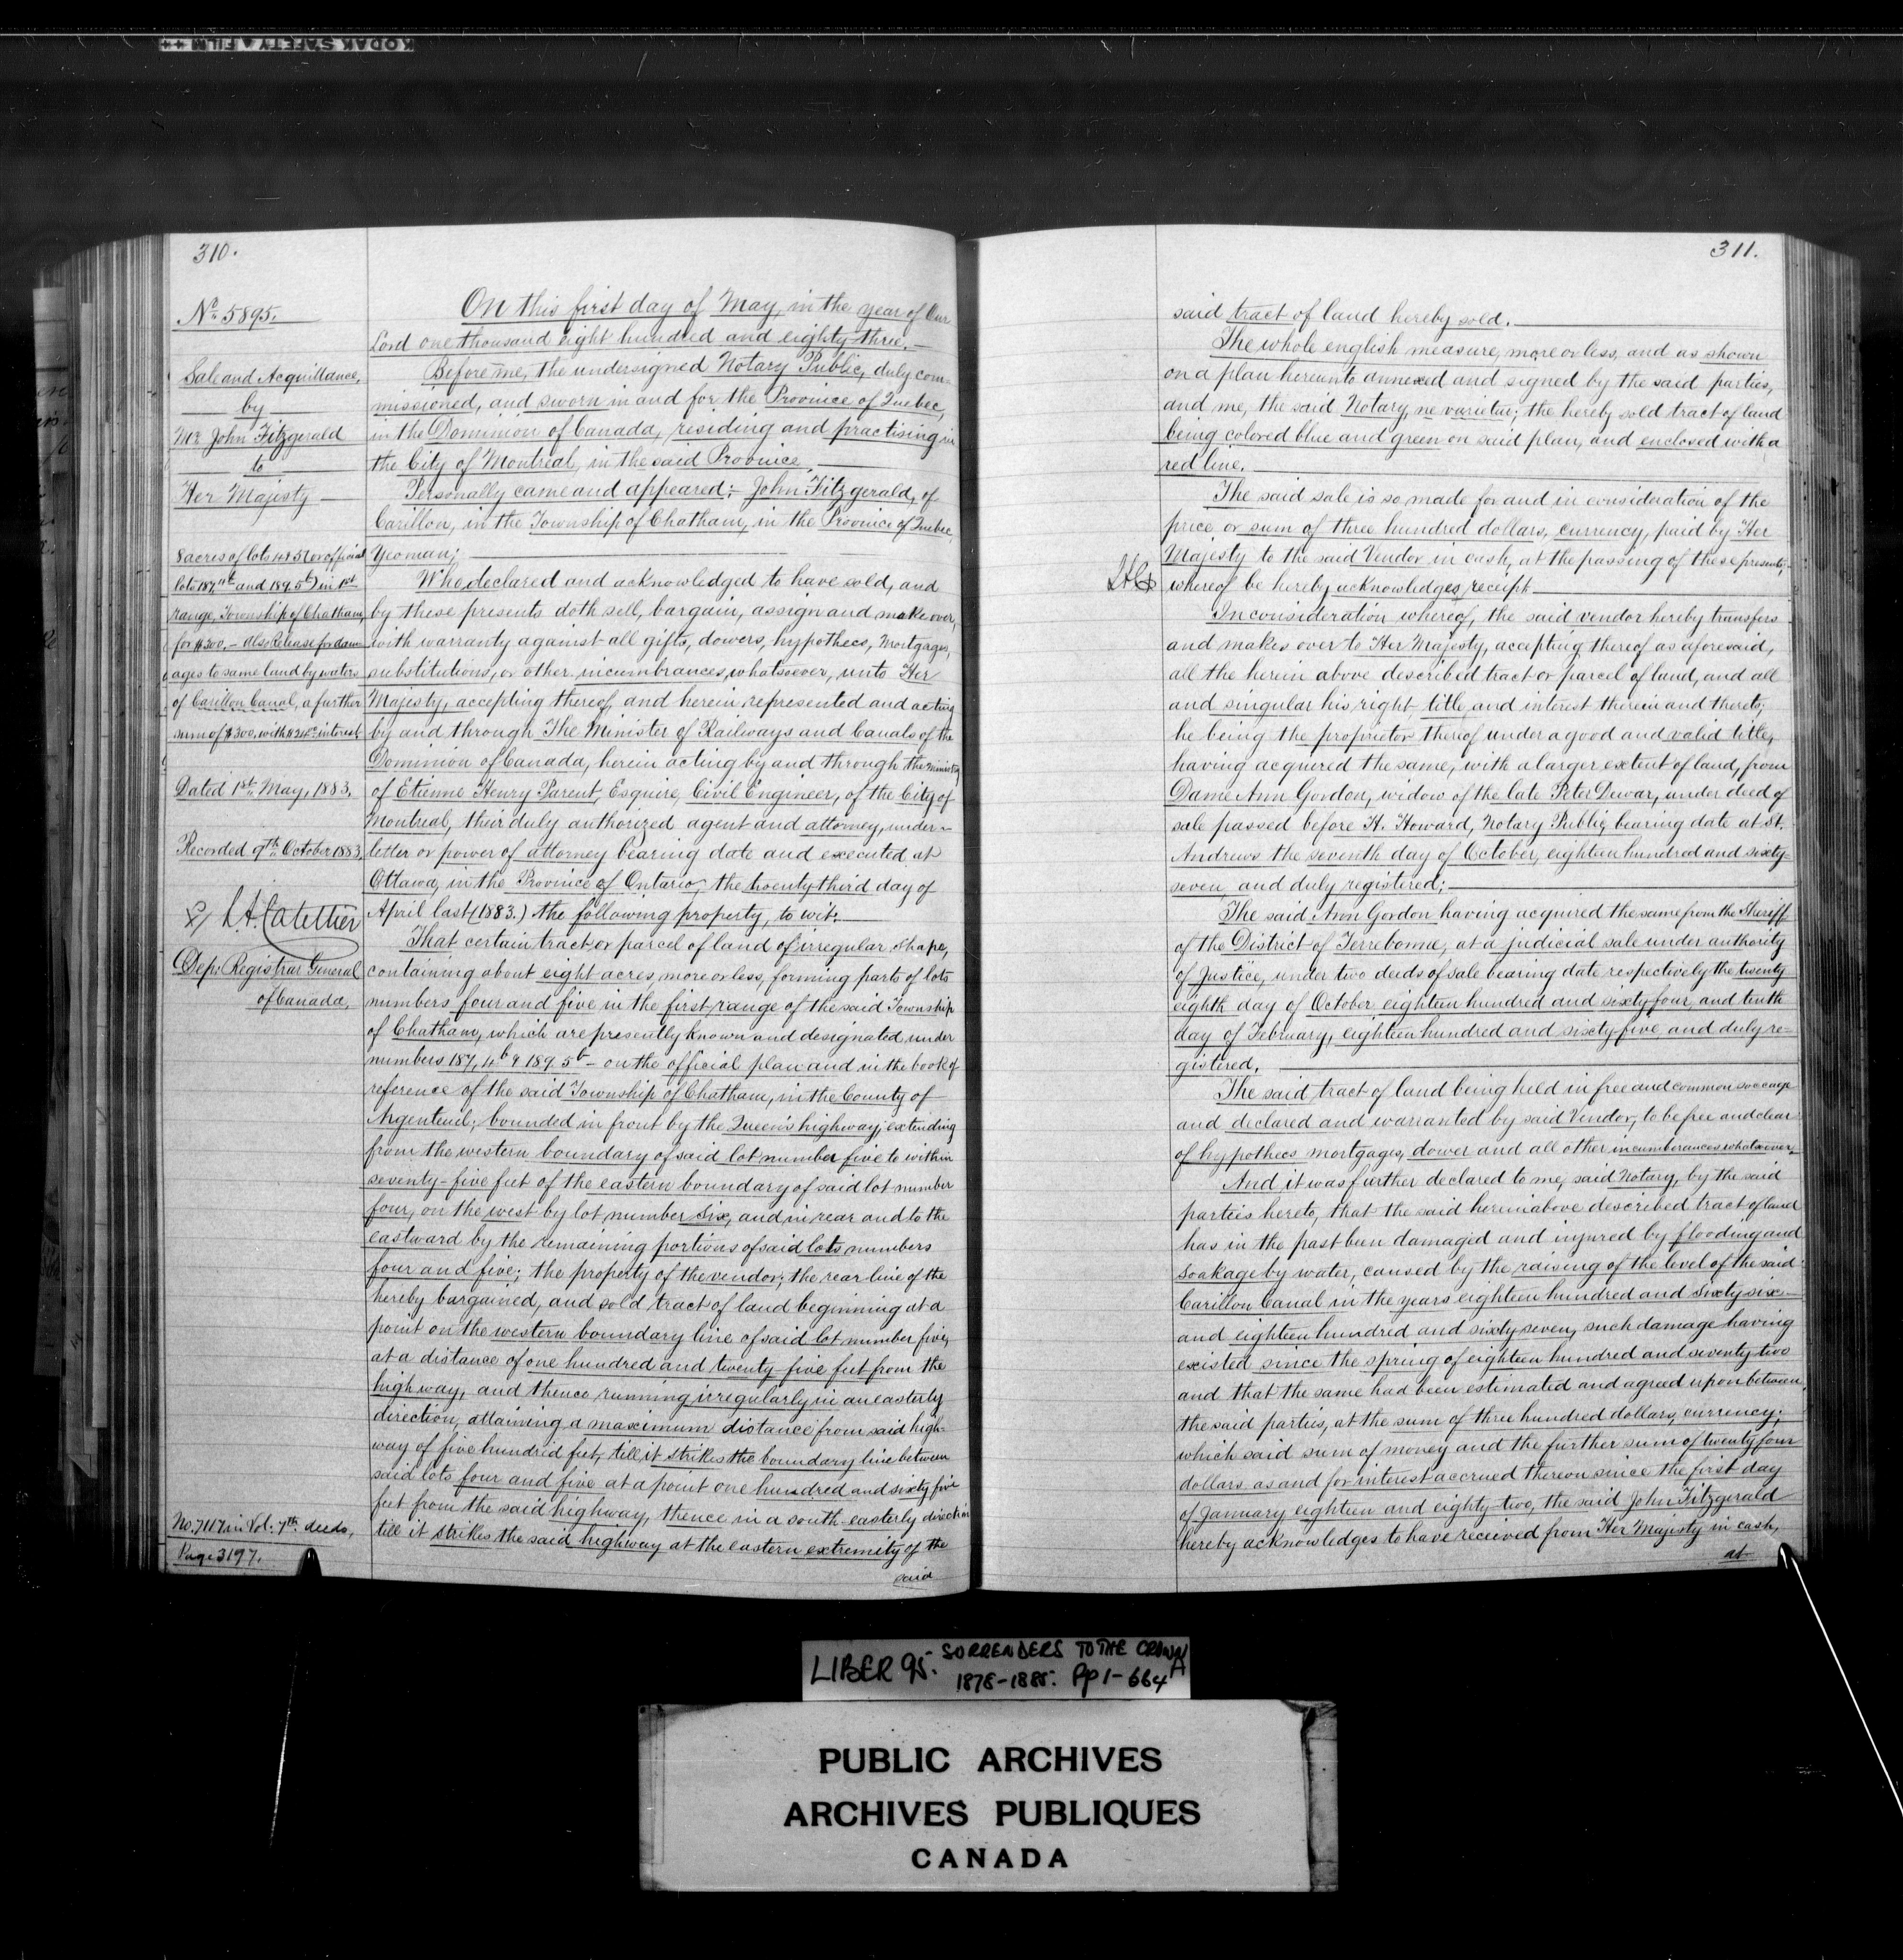 KODAK SAFETY FILM ++
310.
No. 5895.
Sale and Acquittance,
by
Mr. John Fitzgerald
to
Her Majesty
8 acres of lots 4 & 5 (or official
lots 187, 4b and 189. 5b) in 1st
range, Township of Chatham,
for $300. – also Release for dam-
ages to same land by waters
of Carillon Canal, a further
sum of $300. with $24.00 interest
Dated 1st May, 1883.
Recorded 9th October 1883,
L. A. Catellier
Dep: Registrar General
of Canada,
No. 7117 in Vol: 7th deeds,
Page 3197.
On this first day of May, in the year of Our
Lord one thousand eight hundred and eighty-three.
Before me, the undersigned Notary Public, duly com-
missioned, and sworn in and for the Province of Quebec,
in the Dominion of Canada, residing and practising in
the City of Montreal, in the said Province,
Personally came and appeared: John Fitzgerald, of
Carillon, in the Township of Chatham, in the Province of Quebec,
Yeoman;
Who, declared and acknowledged to have sold, and
by these presents doth sell, bargain, assign and make over,
with warranty against all gifts, dowers, hypothecs, Mortgages,
substitutions, or other incumbrances, whatsoever, unto Her
Majesty, accepting thereof, and herein represented and acting
by and through The Minister of Railways and Canals of the
Dominion of Canada, herein acting by and through the ministry
of Etienne Henry Parent, Esquire, Civil Engineer, of the City of
Montreal, their duly authorized agent and attorney, under
letter or power of attorney bearing date and executed at
Ottawa, in the Province of Ontario, the twenty-third day of
April last (1883.) the following property, to wit:
That certain tract or parcel of land of irregular shape,
containing about eight acres, more or less, forming parts of lots
numbers four and five in the first range of the said Township
of Chatham, which are presently known and designated under
numbers 187, 4b & 189. 5b – on the official plan and in the book of
reference of the said Township of Chatham, in the County of
Argenteuil; bounded in front by the Queen's highway; extending
from the western boundary of said lot number five to within
seventy-five feet of the eastern boundary of said lot number
four, on the west by lot number six, and in rear and to the
eastward by the remaining portions of said lots numbers
four and five; the property of the vendor; the rear line of the
hereby bargained, and sold tract of land beginning at a
point on the western boundary line of said lot number five,
at a distance of one hundred and twenty five feet from the
highway, and thence running irregularly in an easterly
direction, attaining a maximum distance from said high-
way of five hundred feet, till it strikes the boundary line between
said lots four and five at a point one hundred and sixty five
feet from the said highway, thence in a south-easterly direction
till it strikes the said highway at the eastern extremity of the
said
311.
said tract of land hereby sold.
The whole english measure, more or less, and as shown
on a plan hereunto annexed and signed by the said parties,
and me, the said Notary, ne varietur; the hereby sold tract of land
being colored blue and green on said plan, and enclosed with a
red line.
The said sale is so made for and in consideration of the
price or sum of three hundred dollars, currency, paid by Her
Majesty to the said Vendor in cash, at the passing of these presents,
whereof be hereby acknowledges receipt.
In consideration whereof, the said vendor hereby transfers
and makes over to Her Majesty, accepting thereof as aforesaid,
all the herein above described tract or parcel of land, and all
and singular his right, title and interest therein and thereto;
he being the proprietor thereof under a good and valid title,
having acquired the same, with a larger extent of land, from
Dame Ann Gordon, widow of the late Peter Dewar, under deed of
sale passed before H. Howard, Notary Public, bearing date at St.
Andrews the seventh day of October, eighteen hundred and sixty-
seven and duly registered;
The said Ann Gordon having acquired the same from the Sheriff
of the District of Terrebonne, at a judicial sale under authority
of Justice, under two deeds of sale bearing date respectively the twenty
eighth day of October eighteen hundred and sixty four, and tenth
day of February, eighteen hundred and sixty-five, and duly re-
gistered.
The said tract of land being held in free and common soccage
and declared and warranted by said Vendor, to be free and clear
of hypothecs mortgages, dower and all other incumbrances whatsoever.
And it was further declared to me, said Notary, by the said
parteis hereto, that the said hereinabove described tract of land
has in the past been damaged and injured by flooding and
soakage by water, caused by the raising of the level of the said
Carillon Canal in the years eighteen hundred and sixty six
and eighteen hundred and sixty seven, such damage having
existed since the spring of eighteen hundred and seventy two
and that the same had been estimated and agreed upon between
the said parties, at the sum of three hundred dollars, currency;
which said sum of money and the further sum of twenty four
dollars as and for interest accrued thereon since the first day
of January eighteen and eighty-two, the said John Fitzgerald
hereby acknowledges to have received from Her Majesty in cash,
at
LIBER 95. SURRENDERS TO THE CROWN
1878-1885. Pp 1-664
PUBLIC ARCHIVES
ARCHIVES PUBLIQUES
CANADA